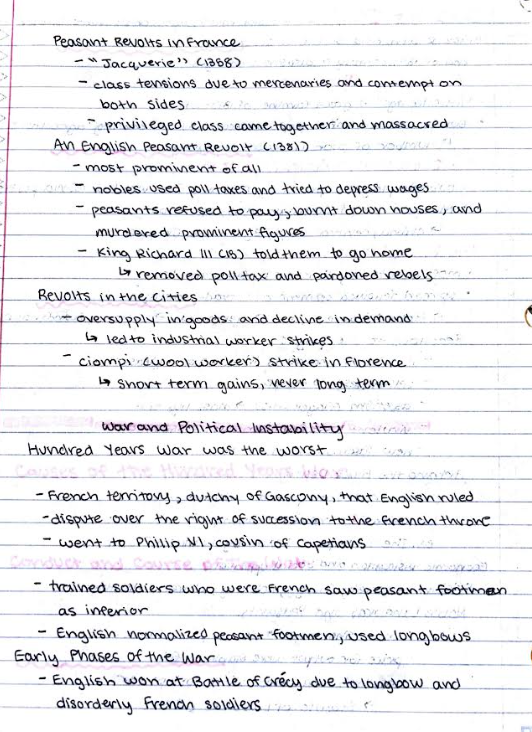 Peasant Revolts in France
- "Jacquerie" (1358)
- class tensions due to mercenaries and contempt on
both sides
- privileged class came together and massacred
An English Peasant Revolt (1381)
- most prominent of all
- nobles used poll taxes and tried to depress wages
- peasants refused to pay, burnt down houses, and
murdered prominent figures
- King Richard III (15) told them to go home
↳ removed poll tax and pardoned rebels
Revolts in the Cities
- oversupply in goods and decline in demand
↳ led to industrial worker strikes
- ciompi (wool worker) strike in Florence
↳ short term gains, never long term
War and Political Instability
Hundred Years War was the worst
Causes of the Hundred Years War
- French territory, dutchy of Gascony, that English ruled
- dispute over the right of sucession to the French throne
- went to Philip VI, cousin of Capetians
Conduct and Course of
- trained soldiers who were French saw peasant footman
as inferior
- English normalized peasant footmen, used longbows
Early Phases of the War
- English won at Battle of Crécy due to longbow and
disorderly French soldiers